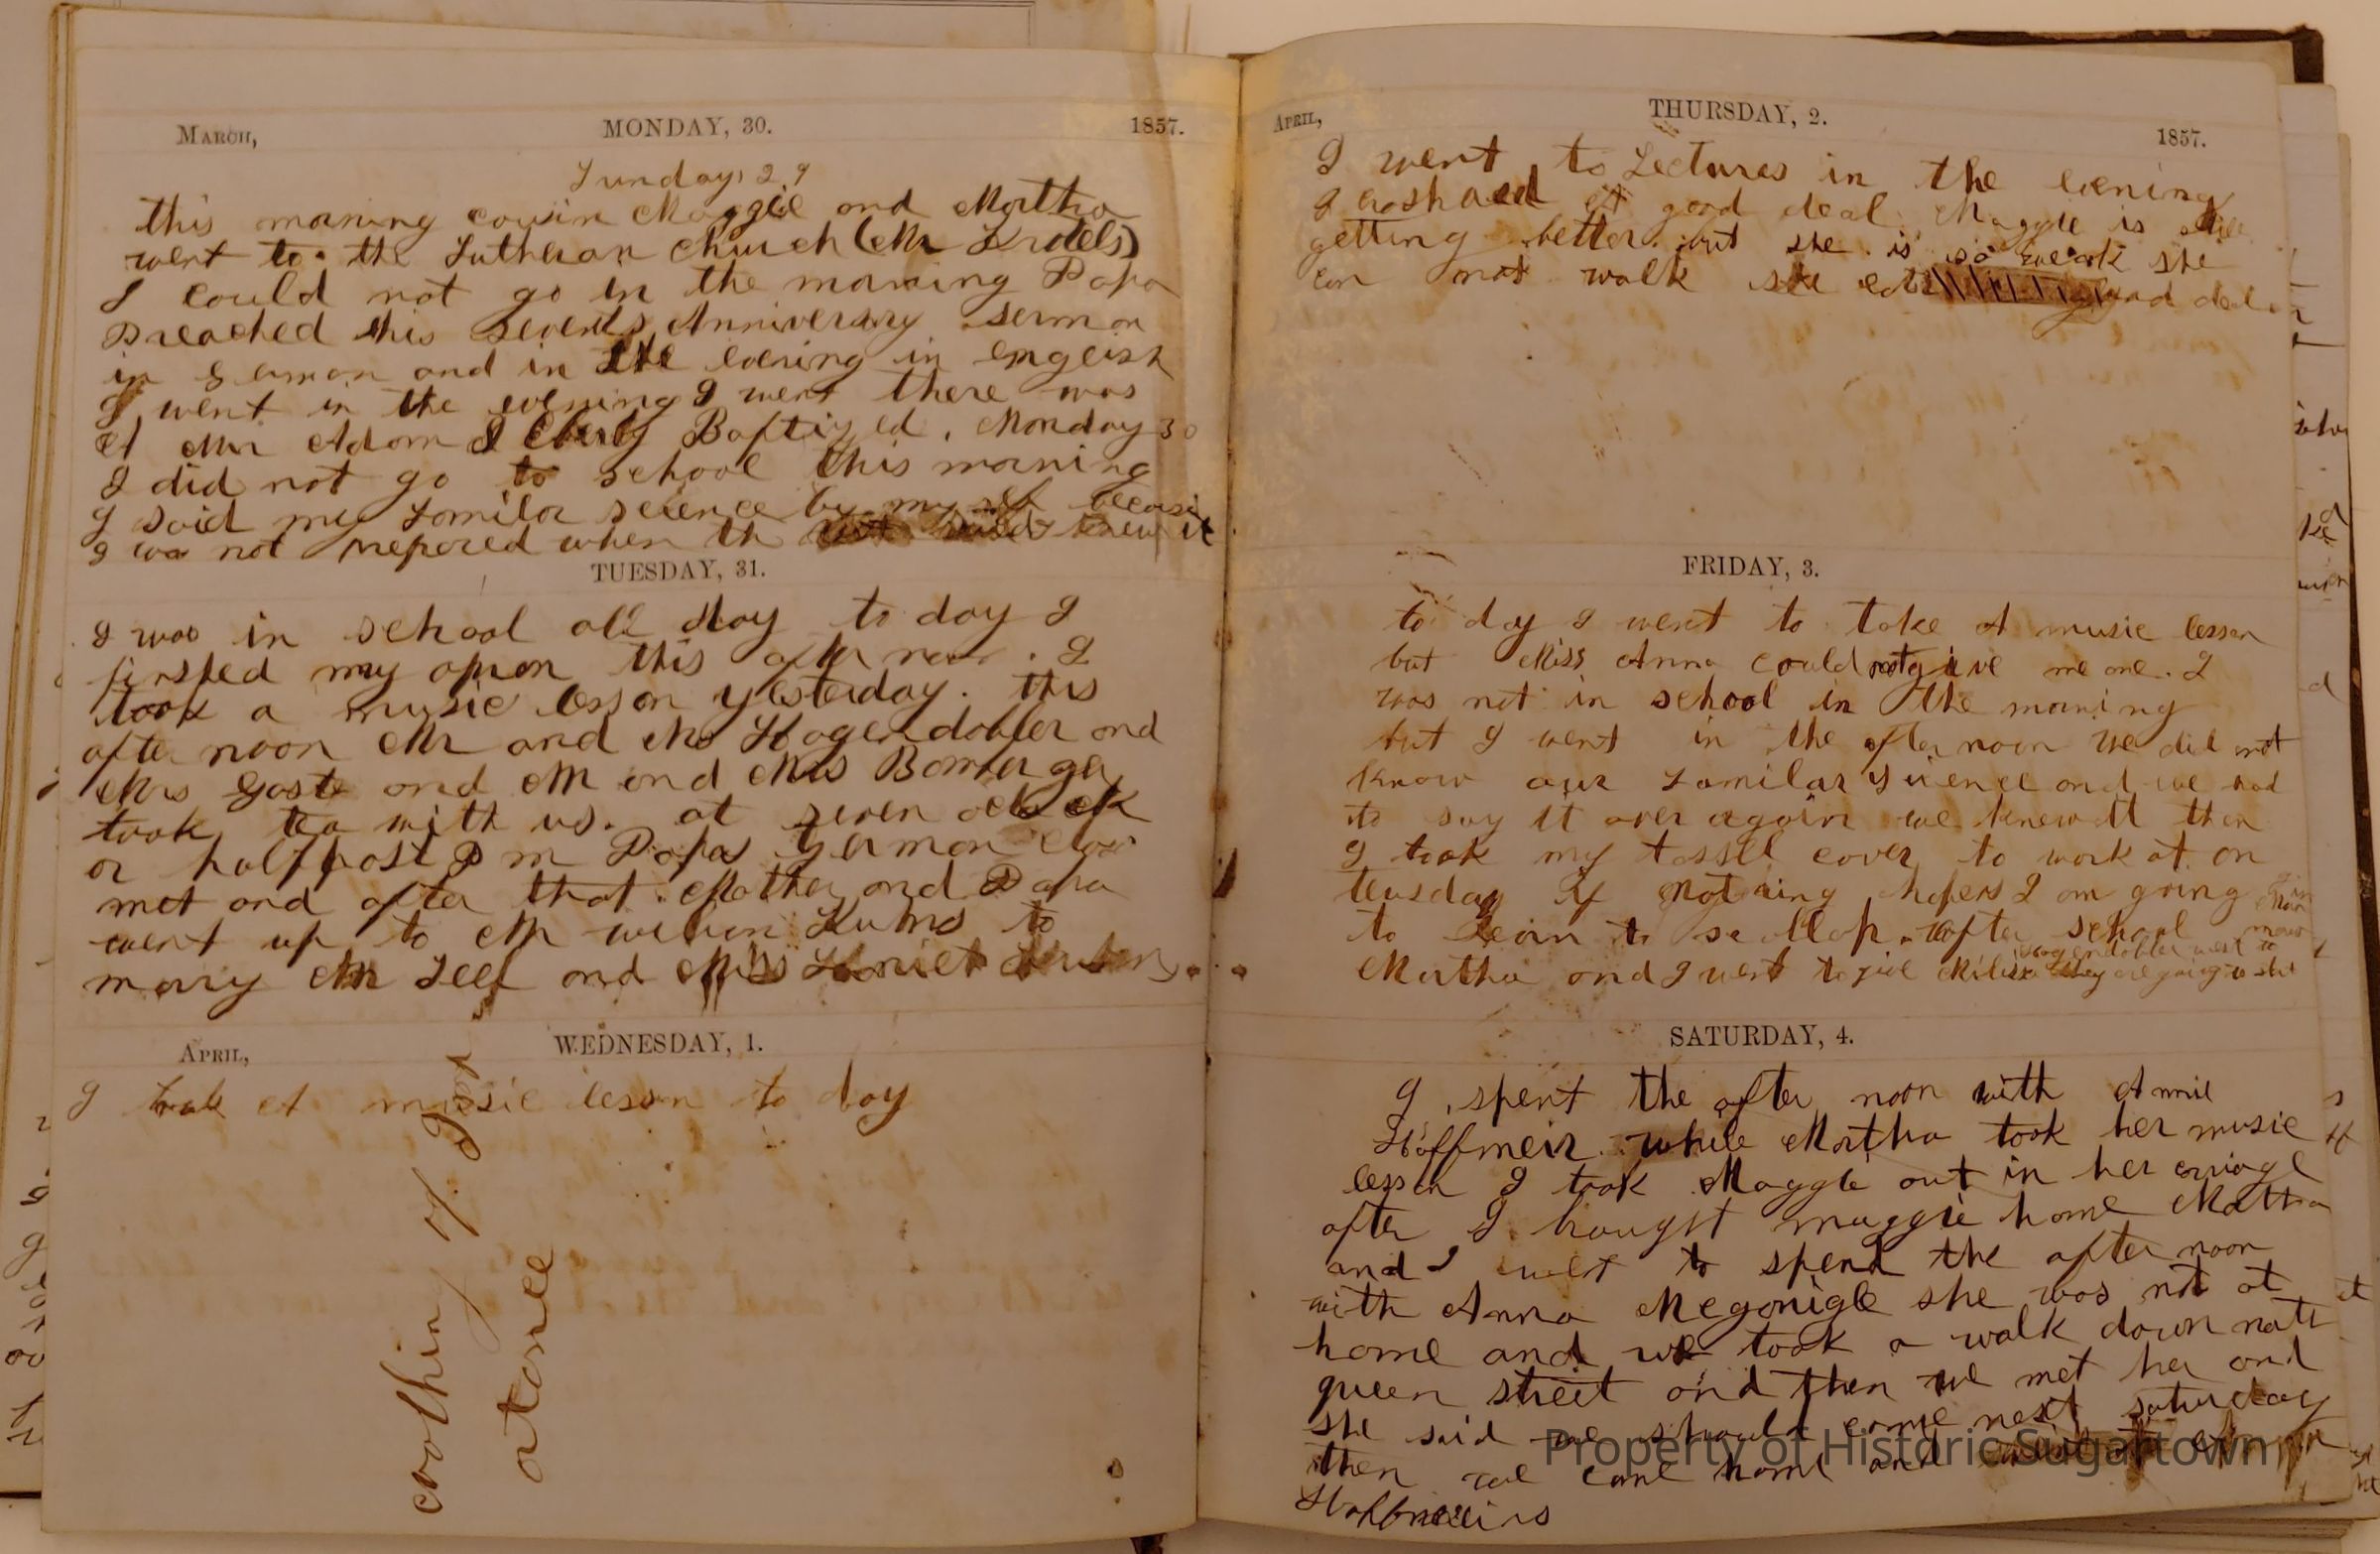 March,
MONDAY, 30.
1857.
Sunday 29
this morning cousin Maggie and Martha
went to the Lutheran Church (Mr Krotels)
I could not go in the morning Papa
Preached this Sevents Anniversary sermon
in German and in the evening in English
I went in the evening I went there was
A Mr Adam S Eberly Baptized. Monday 30
I did not go to school this morning
I said my Familar science by my self because
I was not prepared when th knew it
TUESDAY, 31.
I was in school all day to day I
finshed my apron this after noon. I
took a music lesson yesterday. this
after noon Mr and Ms Hagendobler and
Mrs Gast and Mr and Mrs Bomberger
took tea with us. at seven oclock
or half past P m Papas German Class
met and after that Mother and Papa
went up to Mr Kuhns to
mary Mr and Miss Harriet
April,
WEDNESDAY, 1.
I took A music lesson to day
of
April,
THURSDAY, 2.
1857.
I went to Lectures in the evening
I a good deal. Maggie is still
getting better but she is so weak she
can not walk she eats good deal
FRIDAY, 3.
to day I went to take A music lesson
but Miss Anna could not give me one. I
was not in school in the morning
but I went in the after noon we did not
know our Familar Science and we had
to say it over again we knew it then
I took my tassel cover to work at on
teusday if Nothing hapens I am going
to Learn to scollop. After school
Hagendobler went to
Martha and I went to they are going to
SATURDAY, 4.
I spent the after noon with Annie
Hoffmeir while Martha took her music
lesson I took Maggie out in her carriage
after I brought maggie home Martha
and I went to spend the after noon
with Anna Megonigle she was not at
home and we took a walk down nort
queen street and then we met her and
she said we should come next saturday
then we came home and
Property of Historic Sugartown